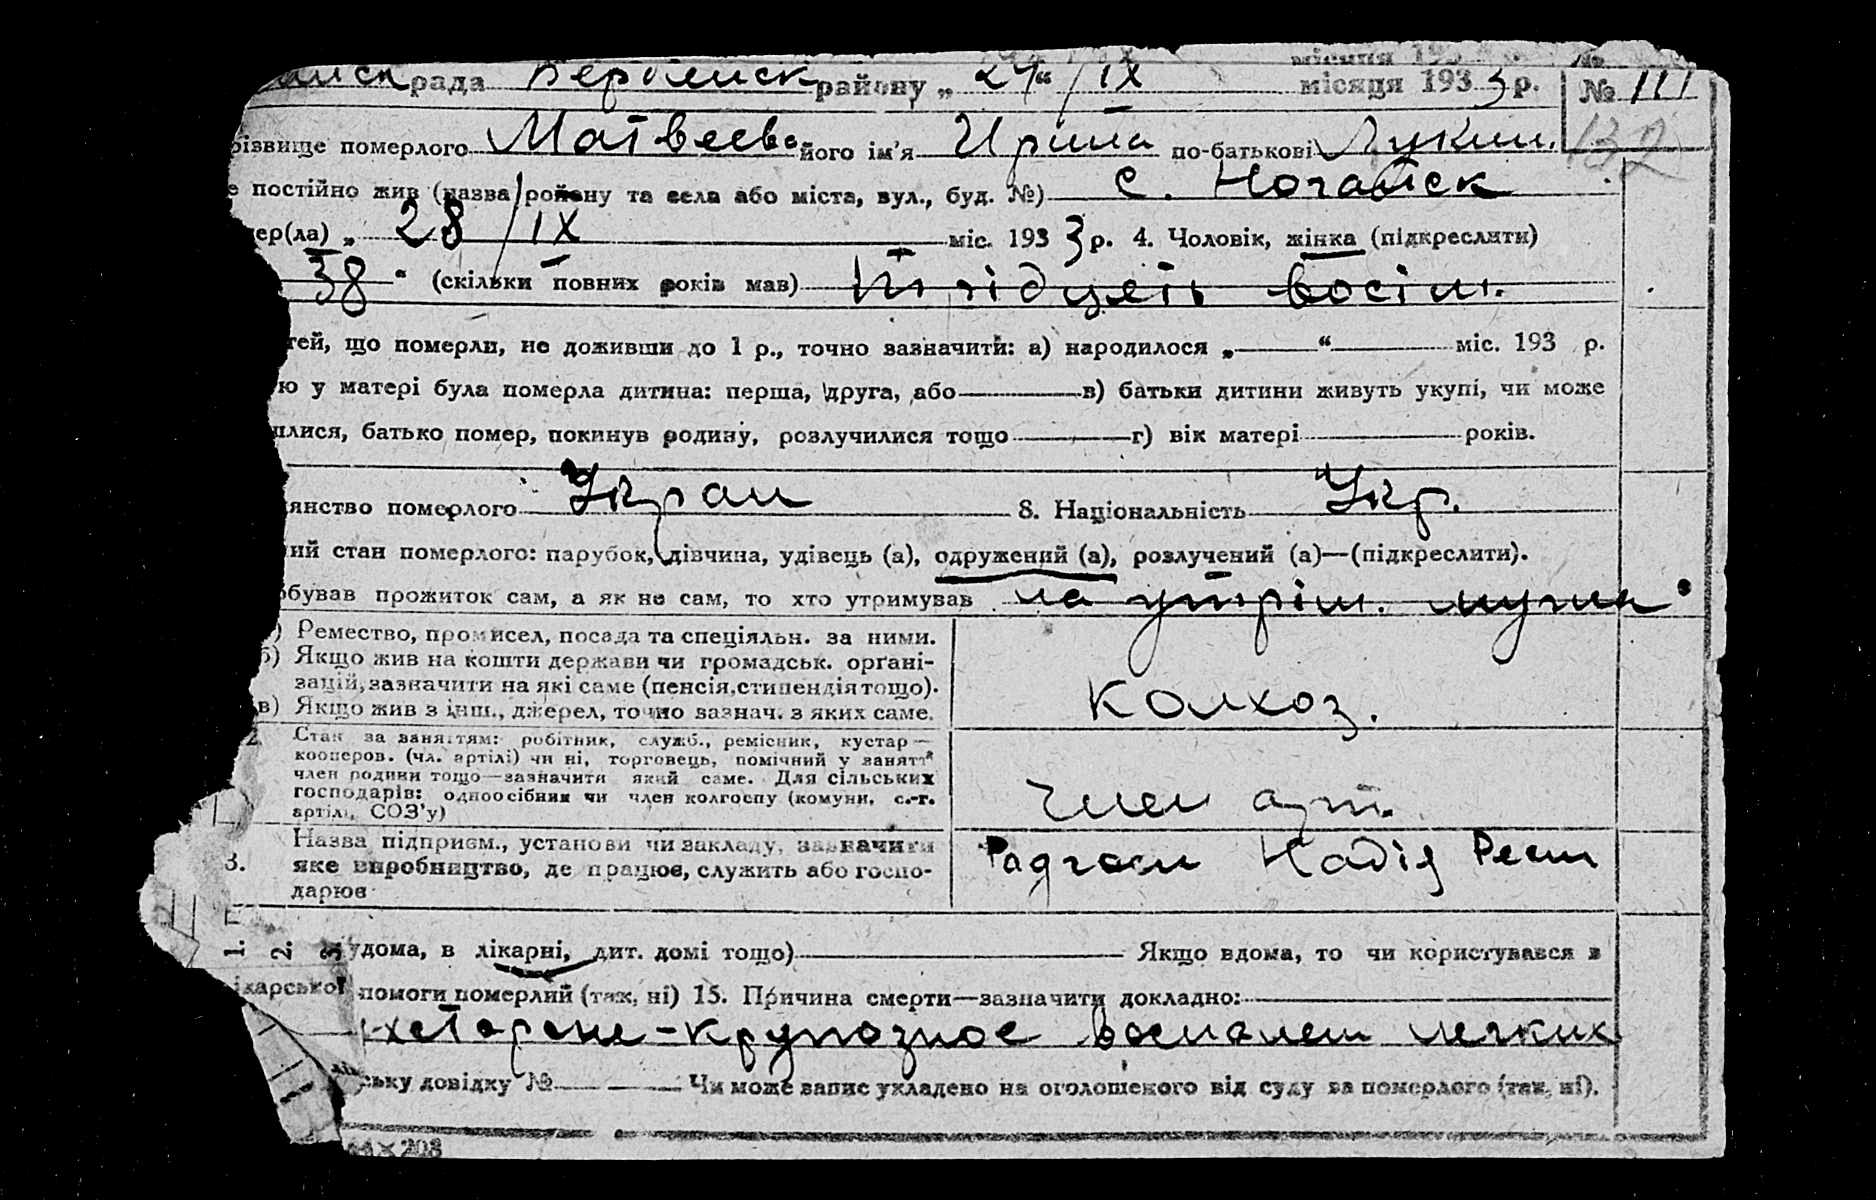 рада Бердянск району „ 29 “ / IX місяця 193 3 р. № 111
132
різвище померлого Матвеева його ім'я Ирина по-батькові Лукин.
е постійно жив (назва району та села або міста, вул., буд. №) с. Ногайск
мер(ла) „ 28 / IX міс. 193 3 р. 4. Чоловік, жінка (підкреслити)
38 “ (скільки повних років мав) тридцять восім.
тей, що померли, не доживши до 1 р., точно зазначити: а) народилося „ “ міс. 193 р.
ю у матері була померла дитина: перша, друга, або в) батьки дитини живуть укупі, чи може
йшлися, батько помер, покинув родину, розлучилися тощо г) вік матері років.
янство померлого Украи 8. Національність Укр.
ий стан померлого: парубок, дівчина, удівець (а), одружений (а), розлучений (а)—(підкреслити).
обував прожиток сам, а як не сам, то хто утримував на утрим. мужа
) Ремество, промисел, посада та спеціяльн. за ними.
б) Якщо жив на кошти держави чи громадськ. орґані-
зацій, зазначити на які саме (пенсія, стипендія тощо).
в) Якщо жив з інш., джерел, точно зазнач. з яких саме.
колхоз.
Стан за заняттям: робітник, служб., ремісник, кустар—
кооперов. (чл. артілі) чи ні, торговець, помічний у занятті
член родини тощо—зазначити який саме. Для сільських
господарів: одноосібник чи член колгоспу (комуни, с.-г.
артілі, СОЗ'у)
член арт.
3. Назва підприєм., установи чи закладу, зазначити
яке виробництво, де працює, служить або госпо-
дарює
Радгосп Надія
1. 2. 3. удома, в лікарні, дит. домі тощо) Якщо вдома, то чи користувався з
ікарської помоги померлий (так, ні) 15. Причина смерти—зазначити докладно:
-крупозное воспален легких
ську довідку № Чи може запис укладено на оголошеного від суду за померлого (так, ні).
× 203